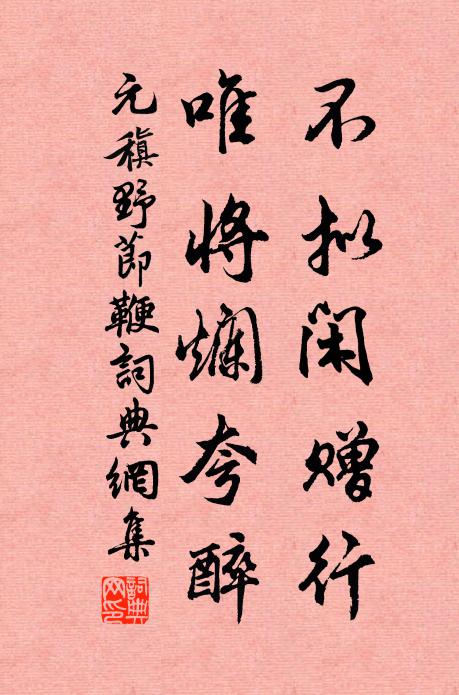 不拟闲赠行
唯将爛夸醉
元稹野節鞭詞典網集
詞典網印